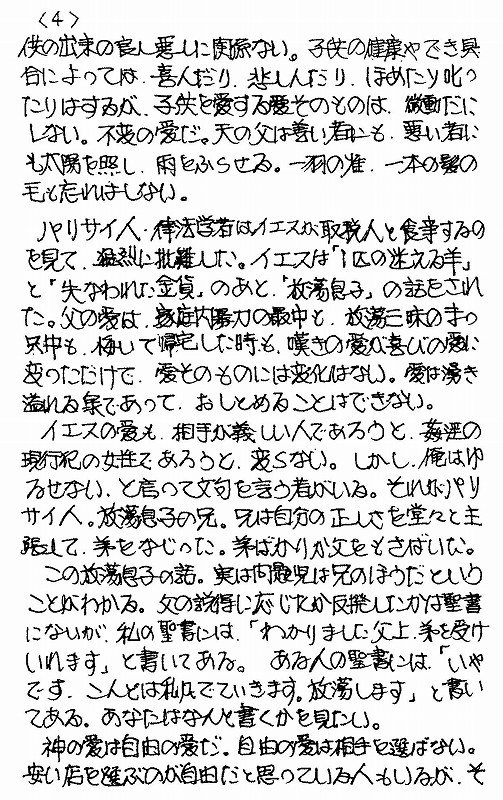 〈4〉
供の出来の良し悪しに関係ない。子供の健康やでき具
合によっては、喜んだり、悲しんだり、ほめたり叱っ
たりはするが、子供を愛する愛そのものは、微動だに
しない。不変の愛だ。天の父は善い者にも、悪い者に
も太陽を照し、雨をふらせる。一羽の雀、一本の髪の
毛も忘れはしない。
パリサイ人・律法学者はイエスが取税人と食事するの
を見て、猛烈に批難した。イエスは「1匹の迷える羊」
と「失なわれた金貨」のあと、「放蕩息子」の話をされ
た。父の愛は、家庭内暴力の最中も、放蕩三昧の手の
只中も、悔いて帰宅した時も、嘆きの愛が喜びの愛に
変っただけで、愛そのものには変化はない。愛は湧き
溢れる泉であって、おしとめることはできない。
イエスの愛も、相手が義しい人であろうと、姦淫の
現行犯の女性であろうと、変らない。しかし、俺はゆ
るせない、と言って文句を言う者がいる。それがパリ
サイ人。放蕩息子の兄。兄は自分の正しさを堂々と主
張して、弟をなじった。弟ばかりか父をもさばいた。
この放蕩息子の話。実は問題児は兄のほうだという
ことがわかる。父の説得に応じたか反発したかは聖書
にないが、私の聖書には、「わかりました父上、弟を受け
いれます」と書いてある。ある人の聖書には、「いや
です、こんどは私がでていきます。放蕩します」と書い
てある。あなたはなんと書くかを見たい。
神の愛は自由の愛だ。自由の愛は相手を選ばない。
安い店を選ぶのが自由だと思っている人もいるが、そ